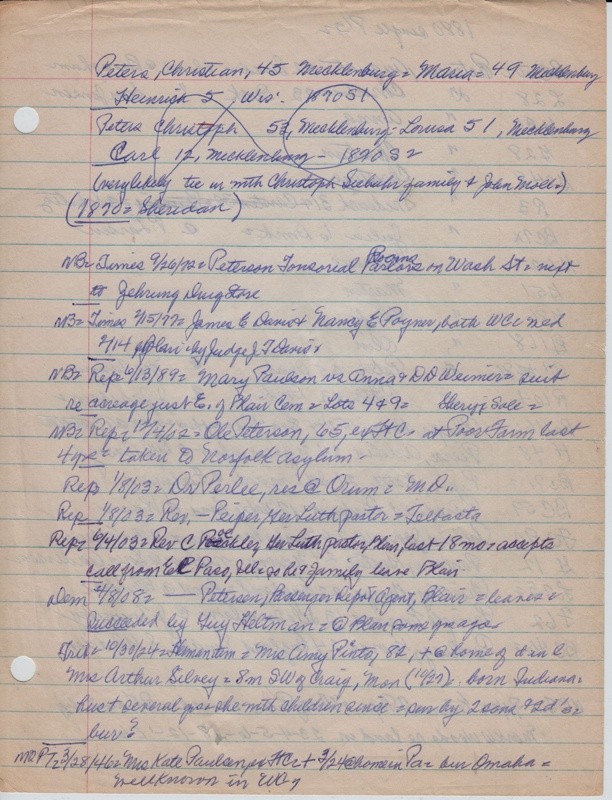 Peters, Christian, 45 Mecklenburg = Maria = 49 Mecklenburg
Heinrich 5, Wis. 1870 S1
Peters Christoph 53, Mecklenburg - Louisa 51, Mecklenburg
Carl 12, Mecklenburg - 1870 S2
(very likely tie in with Christoph family & John
(1870 = Sheridan)
NB = Times 9/26/72 = Peterson Tonsorial Parlors on Wash St = next
to Zehrung Drug Store
NB = Times 2/15/77 = James E Davis & Nancy E Poyner, both WCo wed
2/14 Blair by Judge J T Davis
NB = Rep = 6/13/89 = Mary Paulson vs Anna & D D Weimer = suit
re acreage just E. of Blair Cem = Lots 4 & 9 = Sale =
NB = Rep = Ole Peterson, 65, at Poor Farm last
4 taken to Norfolk asylum -
Rep 1/8/03 = Dr Perlee, res @ Orum = M D
Rep 1/8/03 = Rev. — Peiper, Ger Luth pastor = Telbasta
Rep = 6/4/03 = Rev C Ger Luth pastor, Blair, last 18 mo = accepts
call from El Paso, Ill = so he & family leave Blair
Dem 2/8/08 = — Peterson, Passenger Depot Agent, Blair = leaves =
succeeded by Guy Hetman = @ Blair some yrs ago
Trib = 10/30/24 = Herman tem = Mrs Amy Pinto, 82, + @ home of d in l
Mrs Arthur Dilsey = 8m SW of Craig, Mon (10/27) = born Indiana =
hus + several yrs she with children since = sur by 2 sons & 2 d's =
bur = ?
3/28/46 = Mrs Kate Paulsen + 3/24 @ home in Pa = bur Omaha =
well known in WCo